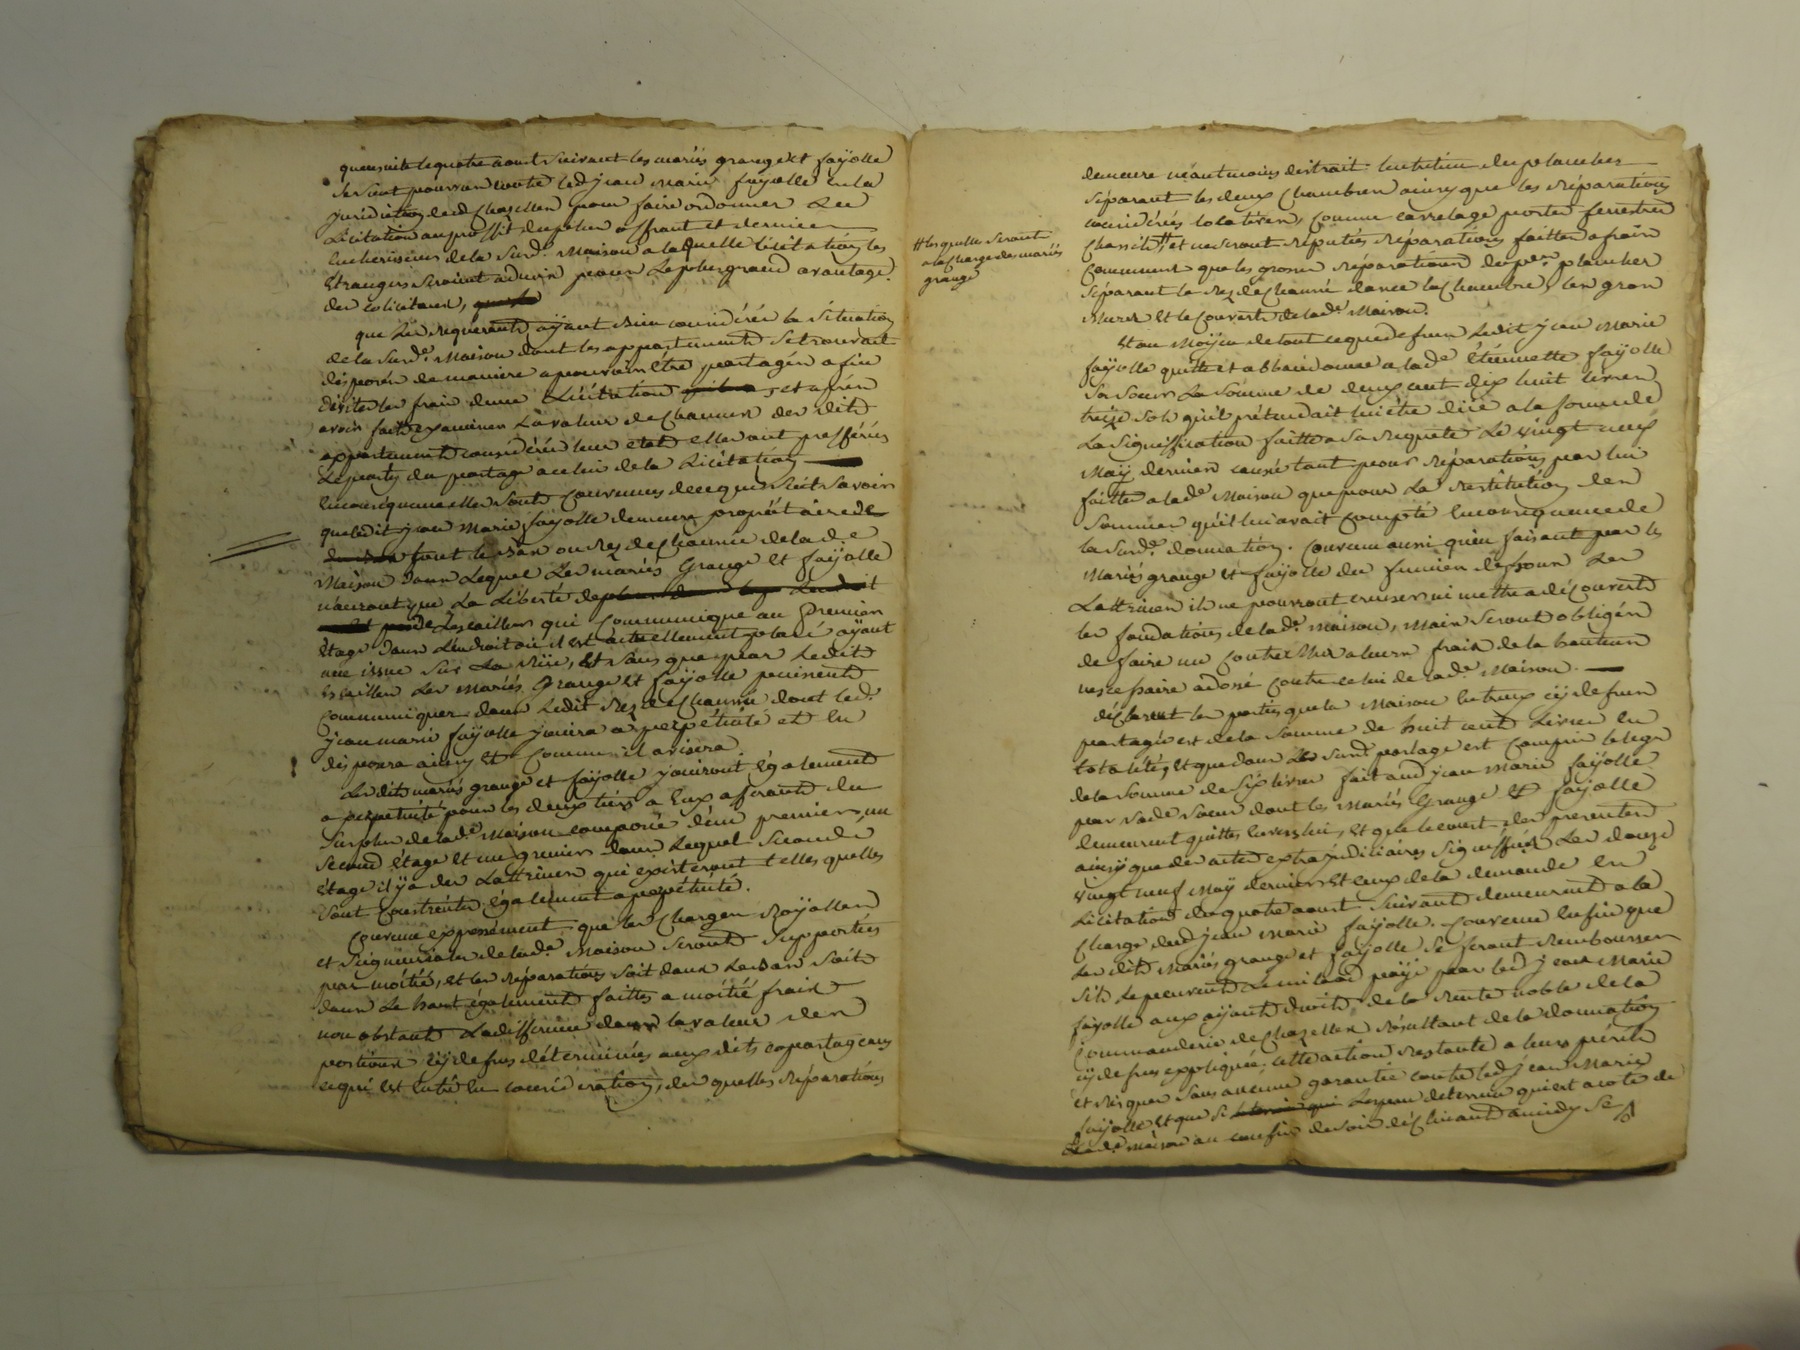 qu'ensuite le quatre aoust suivant les mariés grange et faÿolle
se sont pourvûs contre led jean marie faÿolle en la
juridiction dud Chazelles pour faire ordonner La
Licitation au proffit du plus offrant et dernier
Encherisseur de la surd.e Maison a laquelle licitation les
Etrangers seroient admis pour Le plus grand avantage
des colicitans,
que Les requerants aÿant bien considéré la situation
de la surd.e Maison dont les appartements se trouvent
disposés de maniere a pouvoir être partagés afin
d'eviter les frais d'une Licitation et après
avoir fait examiner La valeur de chacun des dits
appartements considérée leur etat elles ont prefférés
Le parti du partage a celui de la Licitation
En consequence elles sont convenues de ce qui suit savoir
que ledit jean Marie faÿolle demeure propriétaire de
tout le Bas ou Rez de Chaussée de lad.e
Maison dans Lequel Les mariés Grange et faÿolle
n'auront que La Liberté
de Lescaillier qui Communique au Premier
Etage dans L'endroit où il est actuellement placé aÿant
une issue sur La Rüe, Et sans que par Ledit
Escaillier Les Mariés Grange et faÿolle puissent
Communiquer dans Ledit Rez de Chaussée dont led.
jean marie faÿolle jouira a perpétuité et en
disposera ainsy et Comme il avisera.
Lesdits mariés grange et faÿolle jouiront également
a perpetuité pour les deux tiers a Eux afferant du
surplus de lad.e Maison composée d'un premier, un
second Etage Et un grenier dans Lequel second
Etage il ÿ a des Lattrines qui existeront telles quelles
sont construites également a perpétuité.
Convenu expressément que les Charges Roÿalles
et Seigneuriales de lad.e Maison seront Supportées
par moitié, et les réparations soit dans Le Bas soit
dans Le haut également faittes a moitié frais
non obstant La difference dans la valeur des
portions cÿ dessus déterminées aux dits copartageans
ce qui est entré en considération, des quelles réparations
# les quelles seront
a la Charge des mariés
grange
demeure néantmoins distrait l'entretien du plancher
séparant les deux Chambres ainsy que les réparations
considérés locatives, Comme carrelage portes fenestres
Chassis # et ne seront réputés réparations faittes a frais
Communs que les grosses réparations du p.er plancher
séparant le Rez de Chaussé d'avec la Chambre, les gros
Murs Et le Couvert de lad.e Maison.
Et au Moÿen de tout ce que dessus Ledit jean Marie
faÿolle quitte et abbandonne a lad.e Etiennette faÿolle
sa sœur La somme de deux cent dix huit Livres
treize sols qu'il prétendait lui être düe a la forme de
La signiffication faitte a sa requete Le vingt neuf
Maÿ dernier causé tant pour réparations par lui
faittes a lad.e Maison que pour La restitution des
sommes qu'il lui avait Compté en conséquence de
la surd.e donnation. Convenu aussi qu'en faisant par les
Mariés grange et faÿolle du fumier dessous Les
Lattrines ils ne pourront creuser ni mettre a découvert
les fondations de lad.e Maison, Mais seront obligés
de faire un Contre Mur a leurs frais de la hauteur
nescessaire adossé Contre celui de lad.e Maison.
déclarent les parties que la Maison Entr'eux cÿ dessus
partagée est de la somme de huit cent Livres En
totalité, Et que dans Le surd. partage est Compris le legs
de la somme de six livres fait aud jean marie faÿolle
par sad.e sœur dont les Mariés Grange et faÿolle
demeurent quittes Envers lui, Et que le coust des presentes
ainsy que des actes extrajudiciaires signiffiés Les douze
vingt neuf Maÿ derniers Et ceux de la demande En
Licitation du quatre aoust suivant demeurent a la
Charge dud jean Marie faÿolle. Convenu Enfin que
Les dits Mariés grange et faÿolle se feront rembourser
s'ils Le peuvent Le milaod païé par led jean Marie
faÿolle aux aÿants droits de la rente noble de la
Commanderie de Chazelles résultant de la donnation
cÿ dessus expliquée; cette action restante a leurs périls
et risques sans aucune garantie contre led jean Marie
faÿolle Et que si Lespau de terrein qui est a coté de
Lad.e maison au confins de soir déclinant a midy se